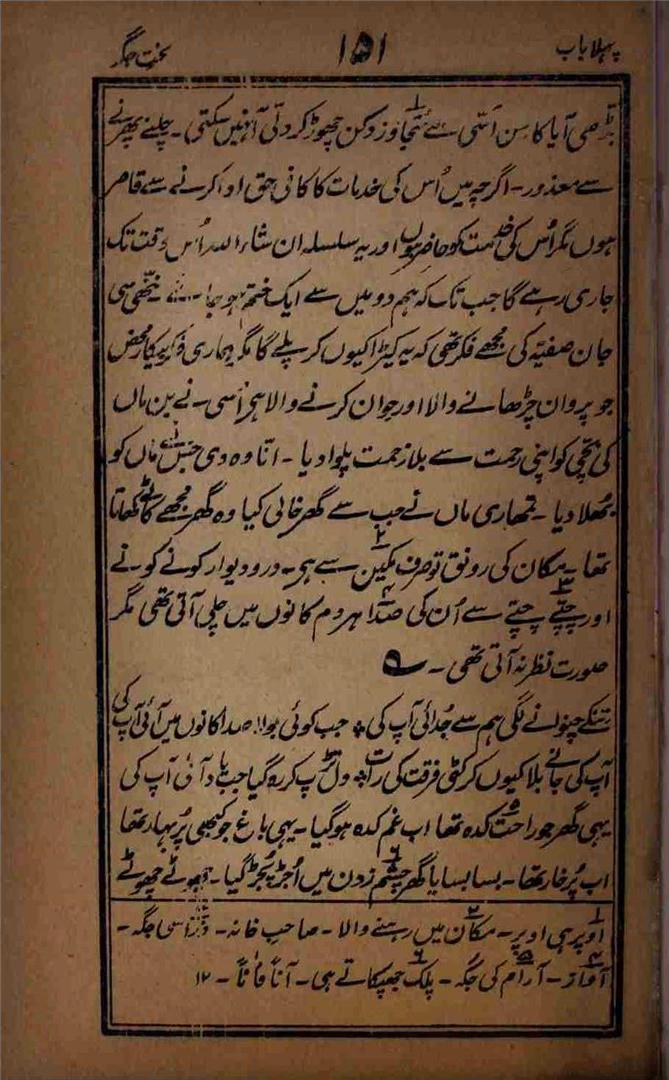 پہلا باب ۱۵۱ لخت جگر
بڑھی آیا کا سِن اَسّی سے مُتجاوز دکن چھوڑ کر دلّی آ نہیں سکتی۔ چلنے پھرنے
سے معذور۔ اگرچہ میں اُس کی خدمات کا کافی حق ادا کرنے سے قاصر
ہوں مگر اُس کی خدمت کو حاضر ہوں اور یہ سلسلہ ان شاء اللہ اُس وقت تک
جاری رہے گا جب تک کہ ہم دو میں سے ایک ختم ہو جا ننّھی سی
جان صفیہ کی مجھے فکر تھی کہ یہ کیڑا کیوں کر پلے گا مگر ہماری فکر بیکار محض
جو پروان چڑھانے والا اور جوان کرنے والا ہر اُسی نے بن ماں
کی بچّی کو اپنی رحمت سے بلا زحمت پلوا دیا۔ انّا وہ دی جس نے ماں کو
بھلا دیا۔ تمھاری ماں نے جب سے گھر خالی کیا وہ گھر مجھے کاٹے کھاتا
تھا۔ مکان کی رونق تو صرف مکین ۲ سے ہر۔ در و دیوار کونے کونے
اور چپّے ۳ چپّے سے اُن کی صدا ۴ ہر دم کانوں میں چلی آتی تھی مگر
صورت نظر نہ آتی تھی۔
تنکے چنوانے لگی ہم سے جُدائی آپ کی ٭ جب کوئی بولا صدا کانوں میں آئی آپ کی
آپ کی جانے بلا کیوں کر کٹی فرقت کی رات ٭ دل تڑپ کر رہ گیا جب یاد آئی آپ کی
یہی گھر جو راحت ۵ کدہ تھا اب غم کدہ ہو گیا۔ یہی باغ جو کبھی پُر بہار تھا
اب پُر خار تھا۔ بسا بسایا گھر چشم ۶ زدن میں اُجڑ پُجڑ گیا۔ چھوٹے چھوٹے
۱ اوپر ہی اوپر۔ ۲ مکان میں رہنے والا۔ صاحب خانہ۔ ۳ ذرّا سی جگہ۔
۴ آواز۔ ۵ آرام کی جگہ۔ ۶ پلک جھپکاتے ہی۔ آناً فاناً۔ ۱۲